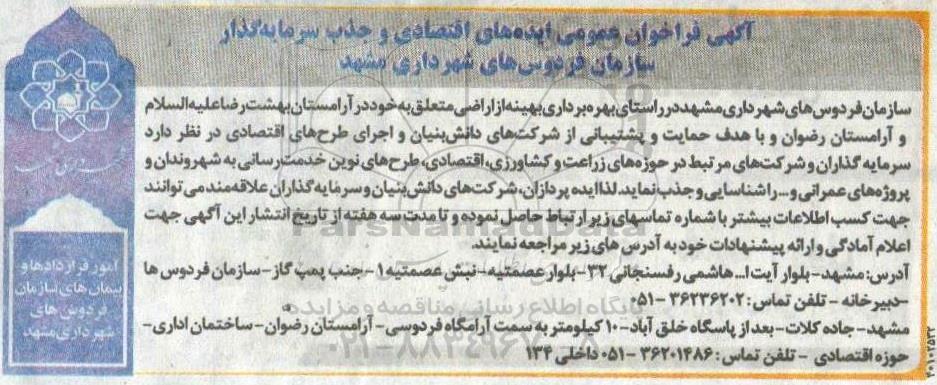 آگهی فراخوان عمومی ایده‌های اقتصادی و جذب سرمایه‌گذار
سازمان فردوس‌های شهرداری مشهد
سازمان فردوس‌های شهرداری مشهد در راستای بهره‌برداری بهینه از اراضی متعلق به خود در آرامستان بهشت رضا علیه السلام
و آرامستان رضوان و با هدف حمایت و پشتیبانی از شرکت‌های دانش‌بنیان و اجرای طرح‌های اقتصادی در نظر دارد
سرمایه گذاران و شرکت‌های مرتبط در حوزه‌های زراعت و کشاورزی، اقتصادی، طرح‌های نوین خدمت‌رسانی به شهروندان و
پروژه‌های عمرانی و... را شناسایی و جذب نماید. لذا ایده پردازان، شرکت‌های دانش‌بنیان و سرمایه گذاران علاقه‌مند می‌توانند
جهت کسب اطلاعات بیشتر با شماره تماسهای زیر ارتباط حاصل نموده و تا مدت سه هفته از تاریخ انتشار این آگهی جهت
اعلام آمادگی و ارائه پیشنهادات خود به آدرس های زیر مراجعه نمایند.
آدرس: مشهد- بلوار آیت ا... هاشمی رفسنجانی ۳۲- بلوار عصمتیه- نبش عصمتیه ۱- جنب پمپ گاز- سازمان فردوس ها
-دبیرخانه - تلفن تماس: ۳۶۲۳۶۲۰۲ -۰۵۱
مشهد- جاده کلات- بعد از پاسگاه خلق آباد- ۱۰ کیلومتر به سمت آرامگاه فردوسی- آرامستان رضوان- ساختمان اداری-
حوزه اقتصادی - تلفن تماس: ۳۶۲۰۱۴۸۶ -۰۵۱ داخلی ۱۳۴
امور قراردادها و
پیمان های سازمان
فردوس های
شهرداری مشهد
ParsNamadData
پایگاه اطلاع رسانی مناقصه و مزایده